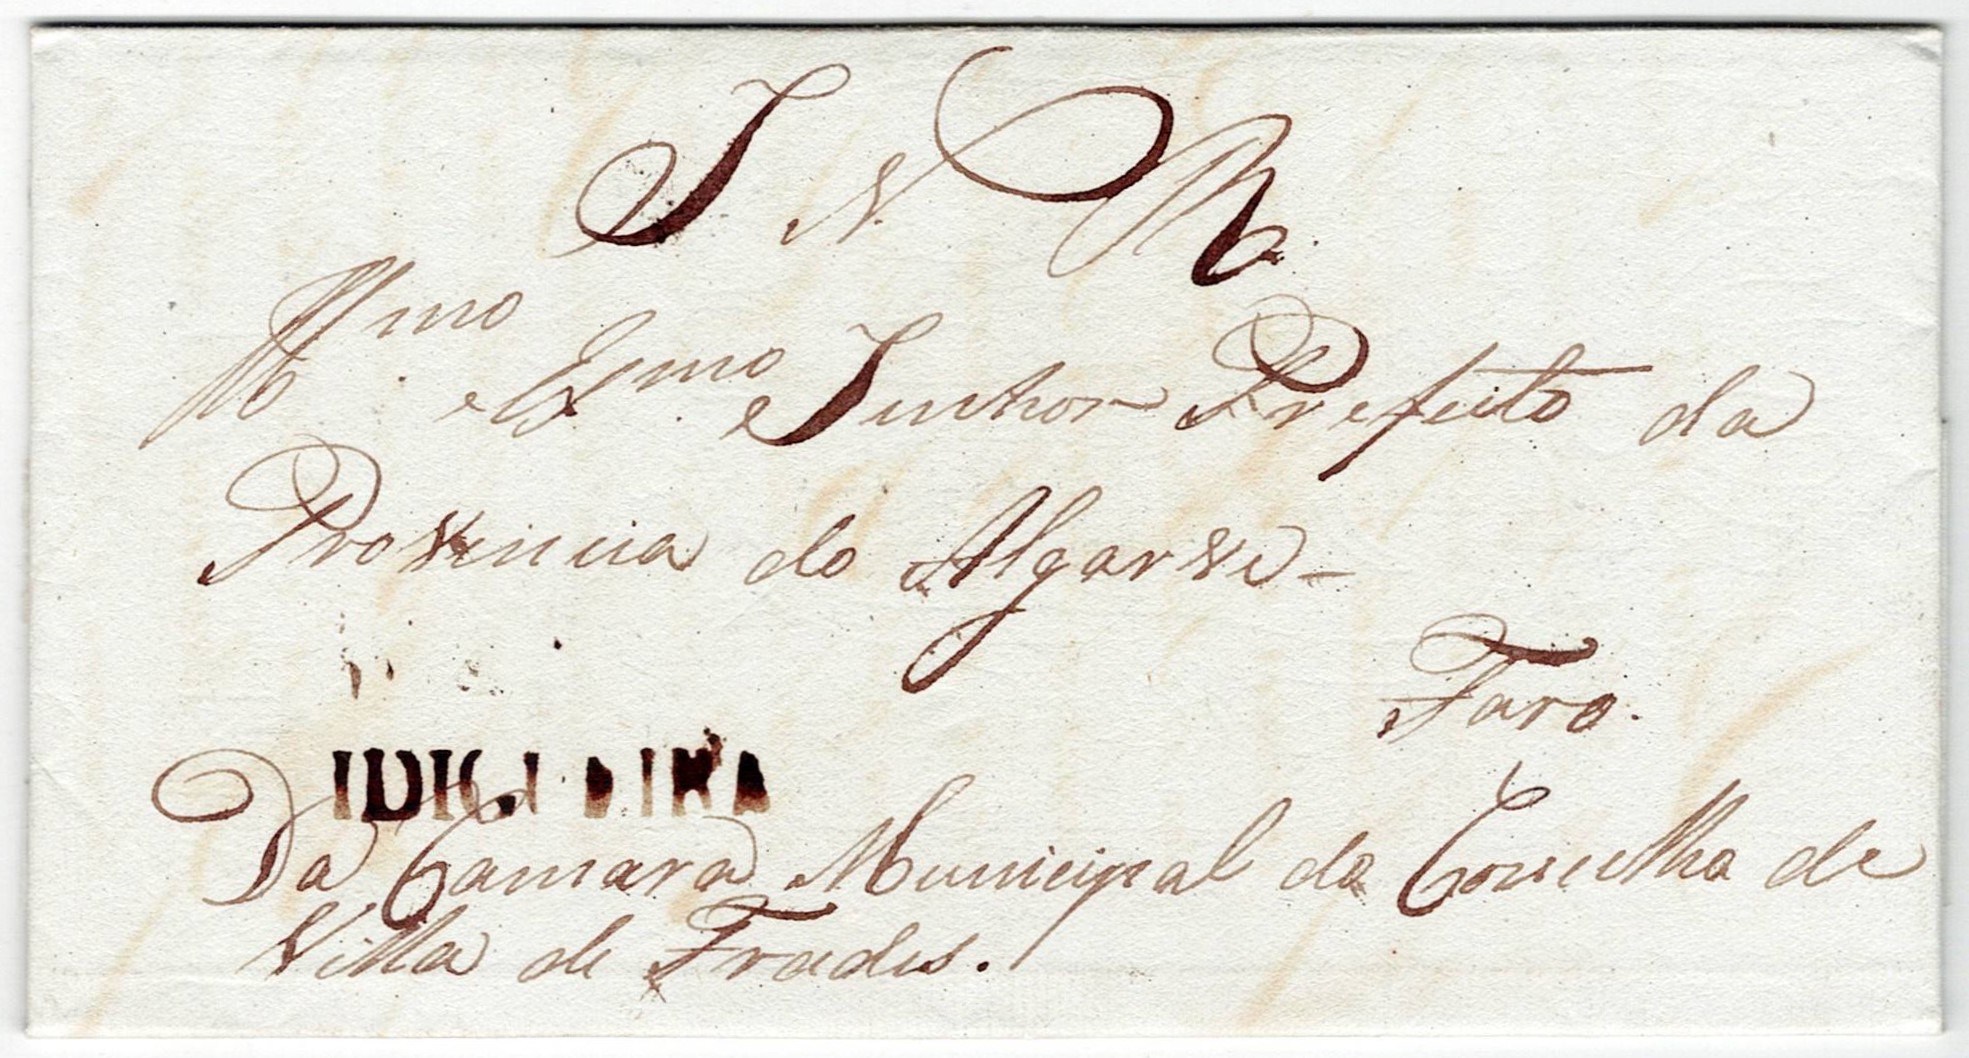 S. N. R.
Illmo. e Exmo. Senhor Prefeito da
Provincia do Algarve -
Faro.
VIDIGUEIRA
Da Camara Municipal do Concelho de
Villa de Frades.